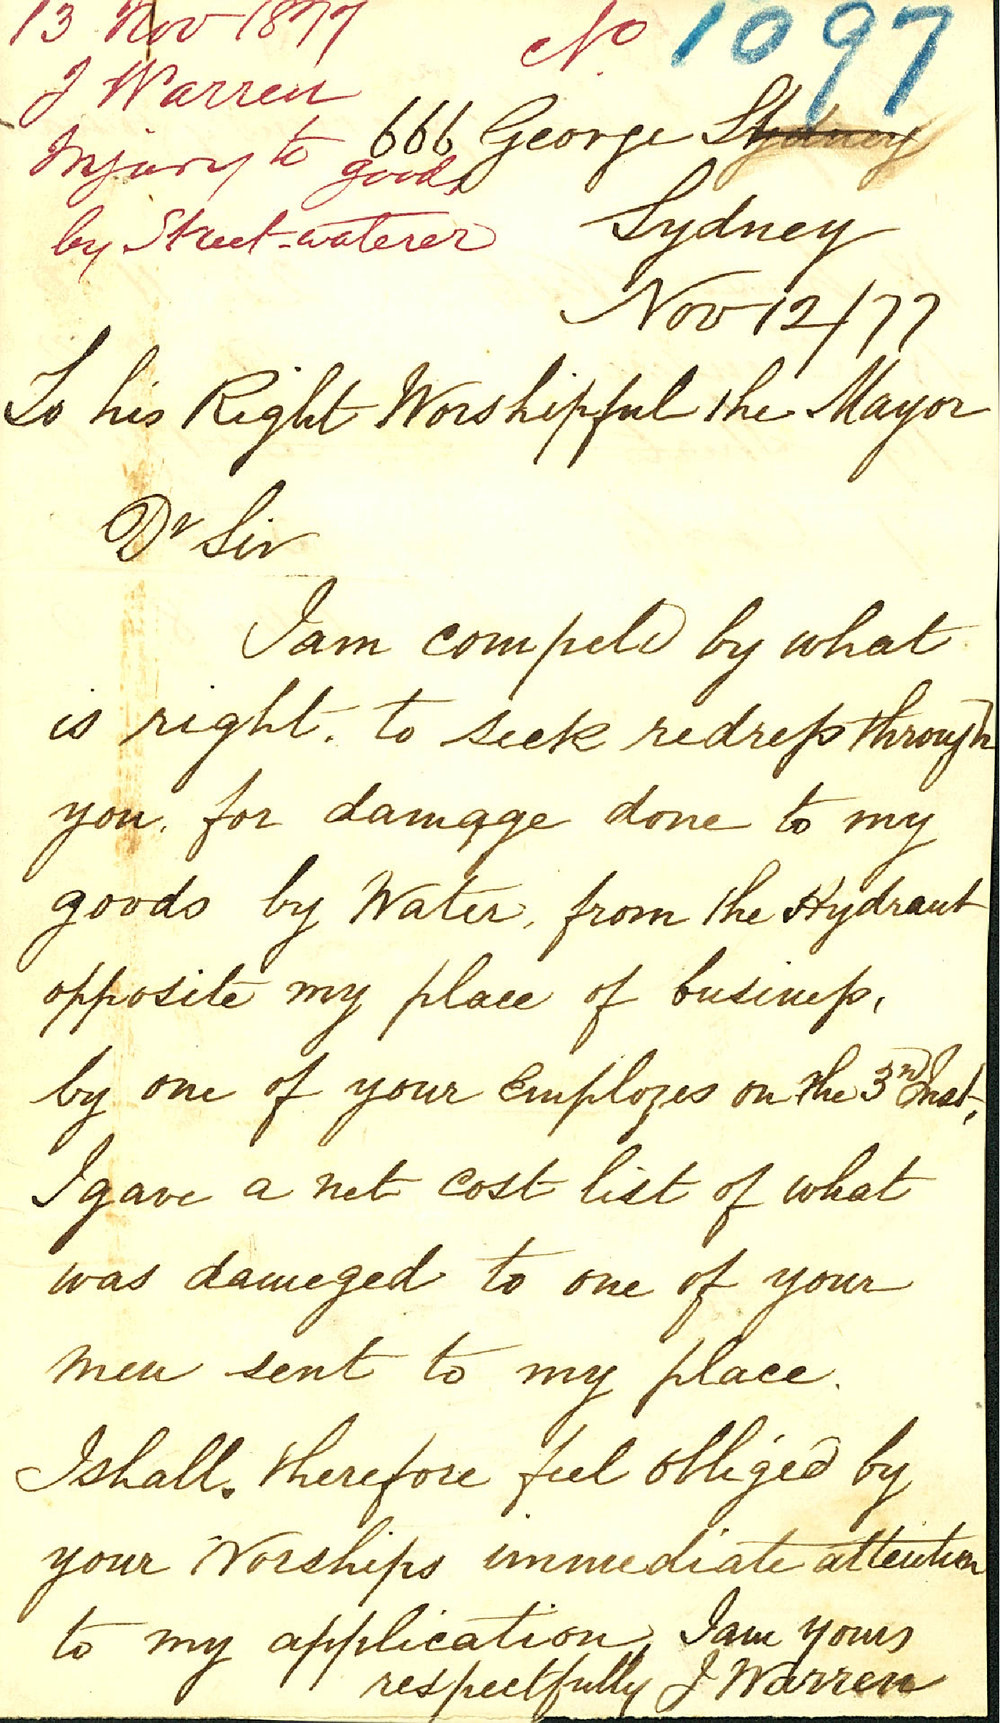 13 Nov 1877
No. 1097
J Warren
Injury to goods
by Street-waterer
666 George St ydney
Sydney
Nov 12/77
To his Right Worshipful the Mayor
Dr Sir
I am compeld by what
is right. to seek redress through
you. for damage done to my
goods by Water, from the Hydrant
opposite my place of business,
by one of your Employes on the 3rd Inst,
I gave a net cost list of what
was dameged to one of your
men sent to my place.
I shall. therefore feel obliged by
your Worships immediate attention
to my application, I am yours
respectfully J Warren